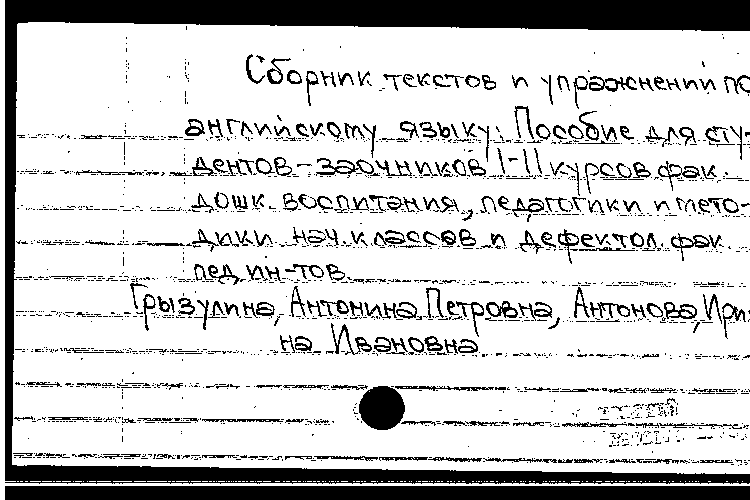 Сборник текстов и упражнений по
английскому языку: Пособие для сту-
дентов-заочников I-II курсов фак.
дошк. воспитания, педагогики и мето-
дики нач. классов и дефектол. фак.
пед. ин-тов.
Грызулина, Антонина Петровна, Антонова, Ири-
на Ивановна